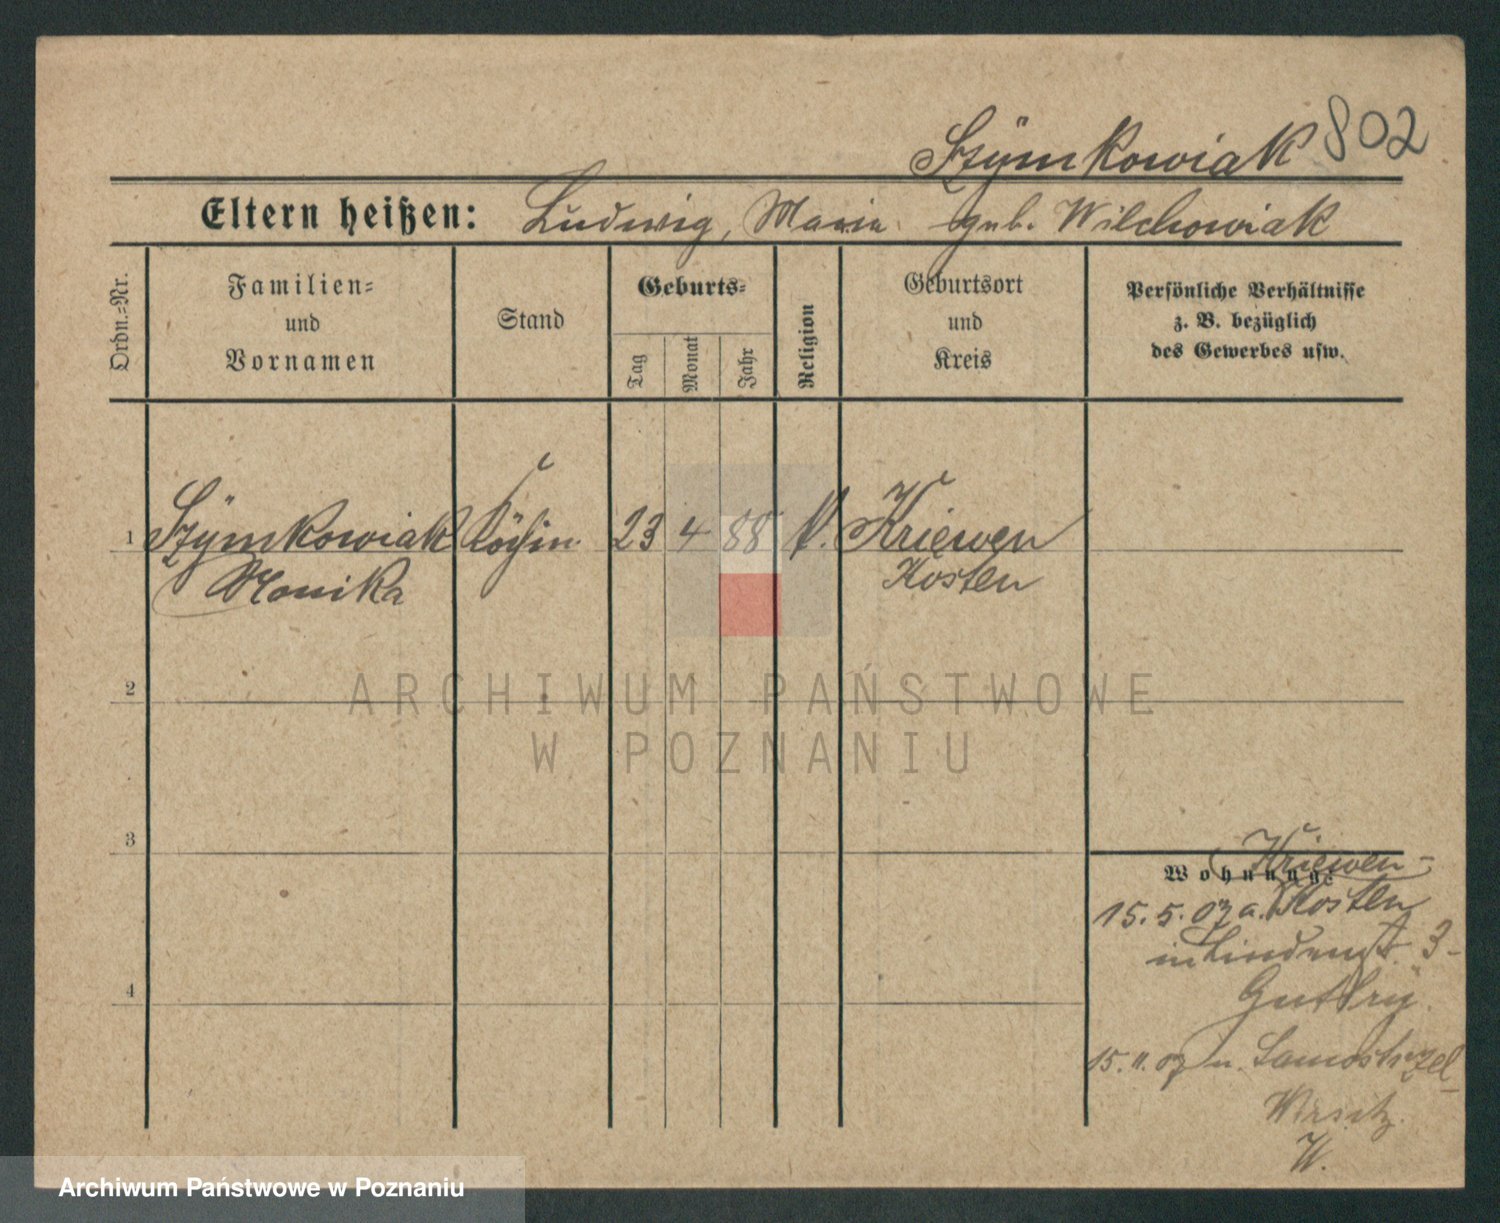 Szymkowiak 802
Eltern heißen: Ludwig, Maria geb. Wilchowiak
Ordn.=Nr.
Familien=
und
Vornamen
Stand
Geburts=
Tag
Monat
Jahr
Religion
Geburtsort
und
Kreis
Persönliche Verhältnisse
z. B. bezüglich
des Gewerbes usw.
1 Szymkowiak Köchin 23 4 88 k. Kriewen
Monika Kosten
2
3
4
Wohnung: Kriewen-
15.5.07 a. Kosten
in Lindenst. 3-
15.11.07 n. Samostrzel
Wirsitz.
ARCHIWUM PAŃSTWOWE
W POZNANIU
Archiwum Państwowe w Poznaniu